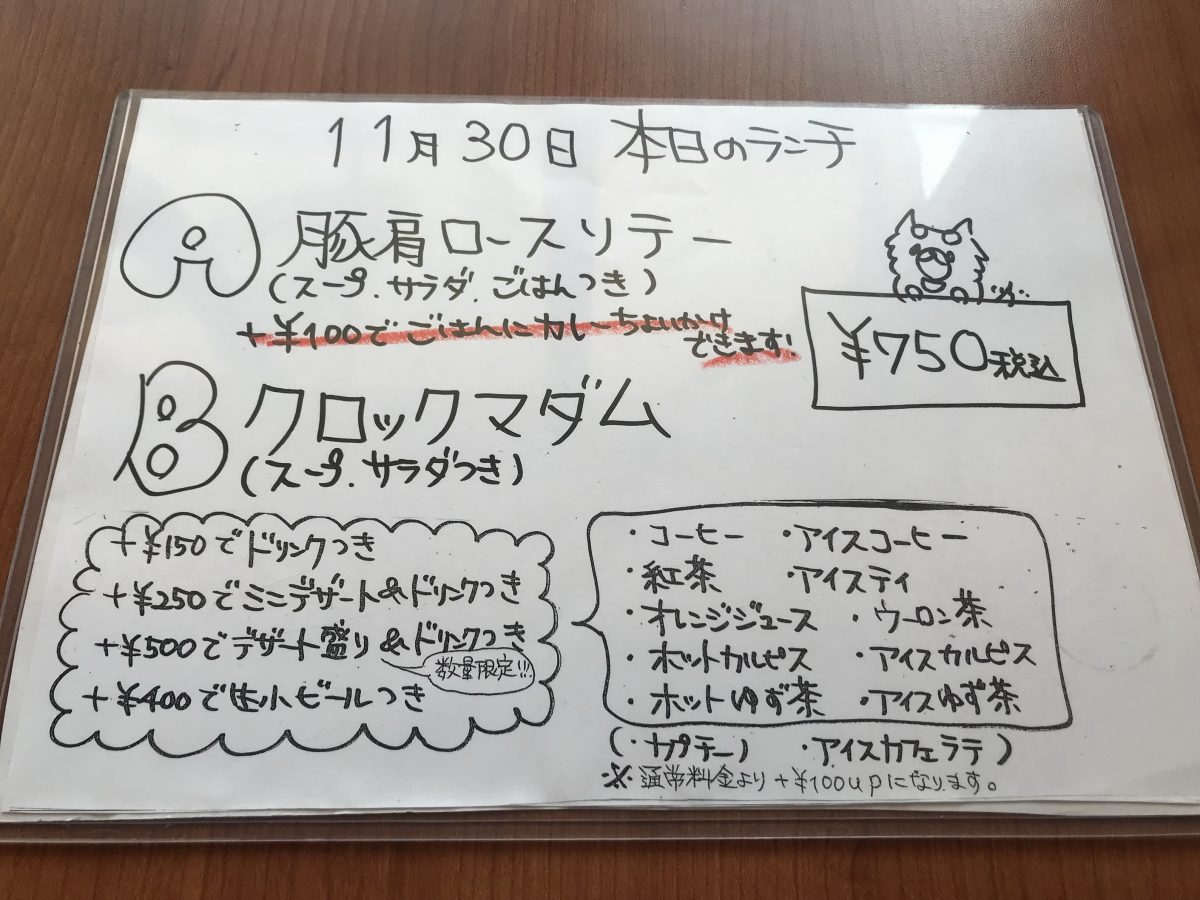 11月30日 本日のランチ
A 豚肩ロースソテー
(スープ、サラダ、ごはんつき)
+¥100でごはんにカレーちょいかけ
できます!
¥750税込
B クロックマダム
(スープ、サラダつき)
+¥150でドリンクつき
+¥250でミニデザート&ドリンクつき
+¥500でデザート盛り&ドリンクつき
数量限定!!!
+¥400で生小ビールつき
・コーヒー ・アイスコーヒー
・紅茶 ・アイスティ
・オレンジジュース ・ウーロン茶
・ホットカルピス ・アイスカルピス
・ホットゆず茶 ・アイスゆず茶
(・カプチーノ ・アイスカフェラテ)
※通常料金より+¥100upになります。